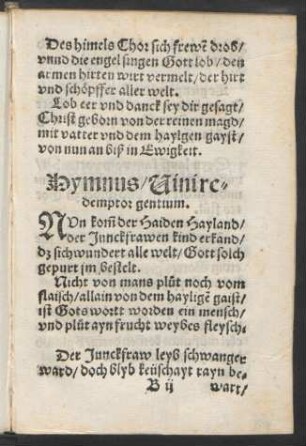 Des himels Chor sich frewẽ drob/
vnnd die engel singen Gott lob/ den
armen hirten wirt vermelt/ der hirt
vnd schöpffer aller welt.
Lob eer vnd danck sey dir gesagt/
Christ geborn von der reinen magd/
mit vatter vnd dem haylgen gayst/
von nun an biß in Ewigkeit.
Hymnus/ Uini re-
demptor gentium.
NUn kom̃ der Haiden Hayland/
der Junckfrawen kind erkand/
dz sich wundert alle welt/ Gott solch
gepurt jm bestelt.
Nicht von mans plůt noch vom
flaisch/ allain von dem hayligẽ gaist/
ist Gots wortt worden ein mensch/
vnd plůt ayn frucht weybes fleysch.
Der Junckfraw leyb schwanger
ward/ doch blyb keüschayt rayn be-
B ij wart/